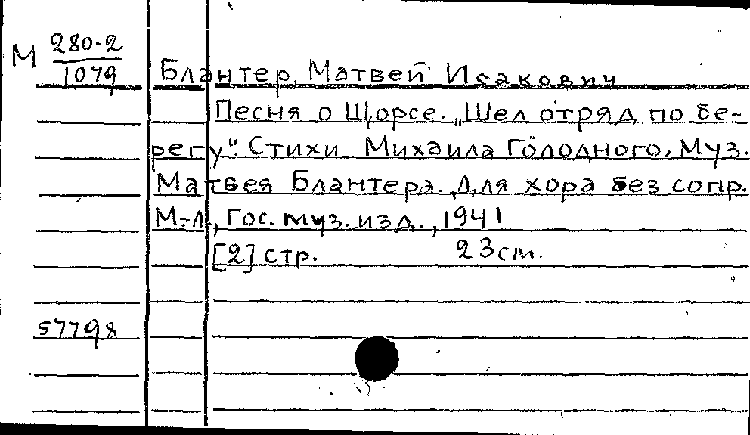 М 280-2
1079
Блантер, Матвей Исакович
Песня о Щорсе. „Шел отряд по бе-
регу". Стихи Михаила Голодного. Муз.
Матвея Блантера. Для хора без сопр.
М.-Л., Гос. муз. изд., 1941
[2] стр. 23 cm.
57798